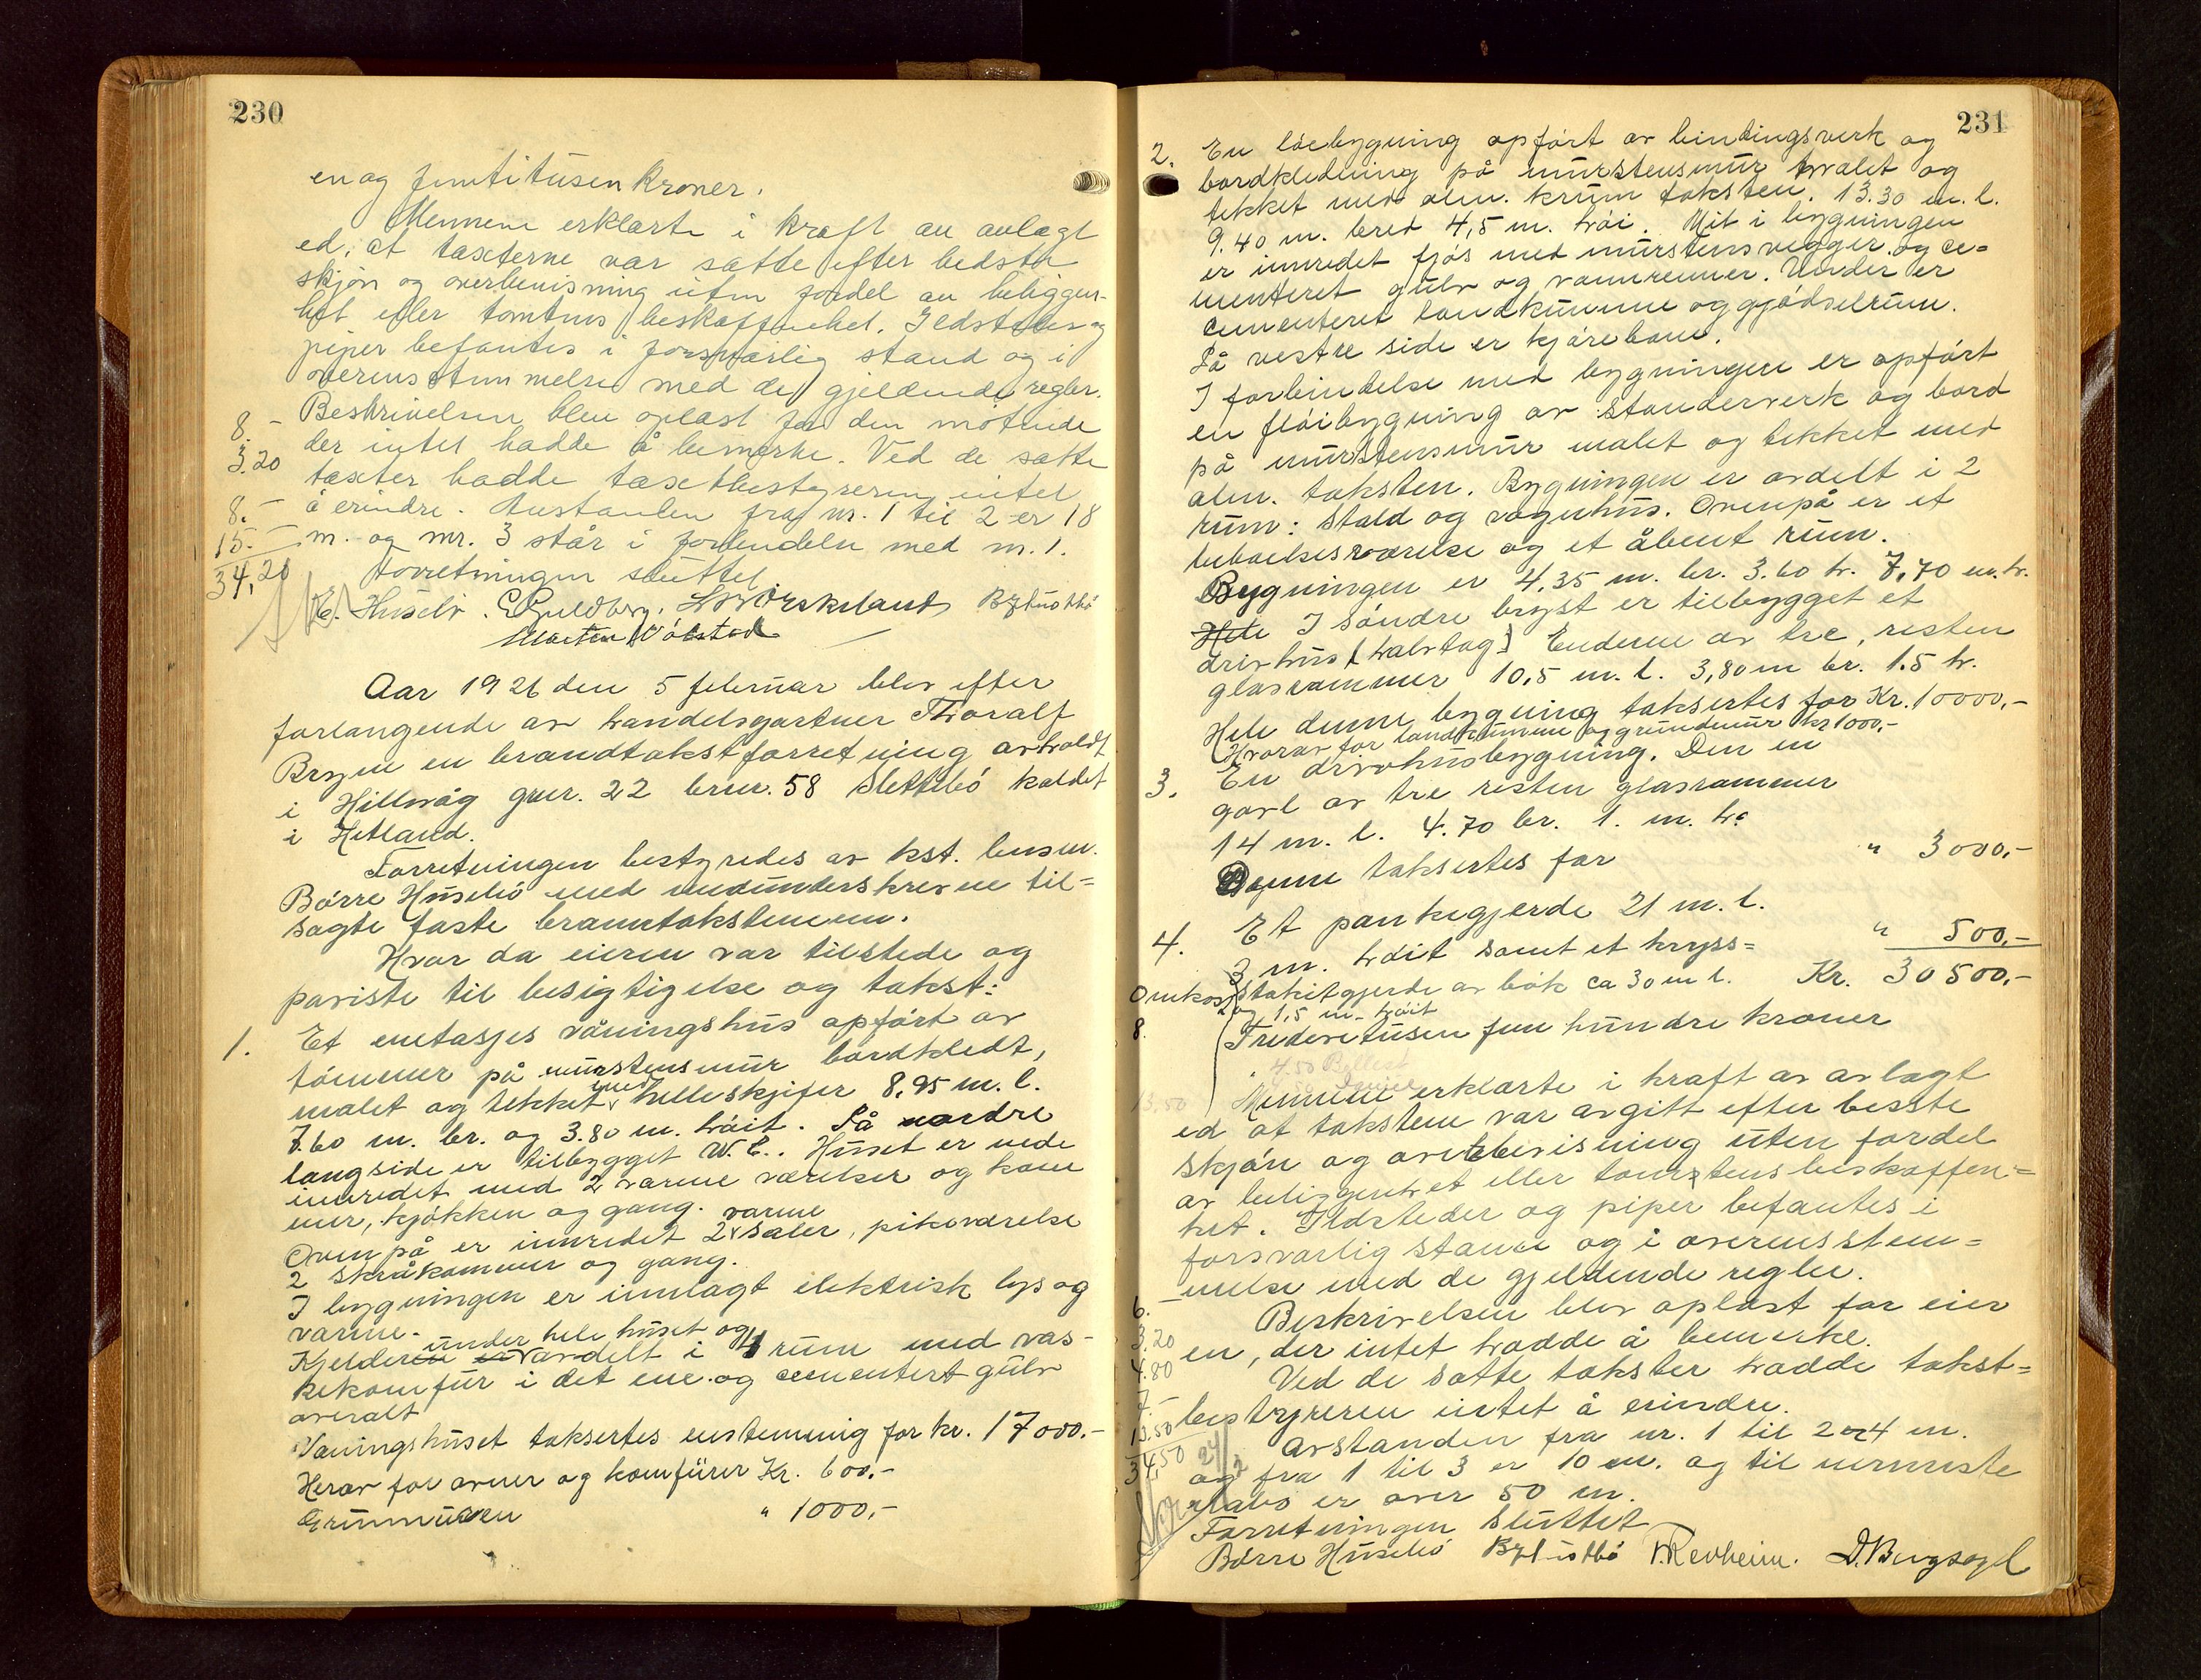 230
en og femtitusen kroner.
Mennene erklærte i kraft av avlagt
ed, at taxterne var satte efter bedste
skjøn og overbevisning uten fordel av beliggen-
het eller tomtens beskaffenhet. Ildsteder og
piper befantes i forsvarlig stand og i
overensstemmelse med de gjeldende regler.
8. - Beskrivelsen blev oplæst for den møtende
3.20 der intet hadde å bemerke. Ved de satte
taxter hadde taxtbestyreren intet
8. - å erindre. Avstanden fra nr. 1 til 2 er 18
15. - m. og nr. 3 står i forbindelse med nr. 1.
34,20 Forretningen sluttet
E. Husebø. E. Guldberg. Byhustbø
Morten Vølstad
Aar 1926 den 5 februar blev efter
forlangende av handelsgartner Thoralf
Bryne en brandtakstforretning avholdt
i Hillevåg gnr. 22 brnr. 58 Slettebø kaldet
i Hetland.
Forretningen bestyredes av kst. lensm.
Børre Husebø med medunderskrevne til=
sagte faste branntakstmenn.
Hvor da eieren var tilstede og
paviste til besigtigelse og takst:
1. Et enetasjes våningshus opført av
tømmer på murstensmur bordkledt,
malet og tekket med helleskjifer 8,95 m. l.
7.60 m. br. og 3.80 m. høit. På nordre
langside er tilbygget W.C.. Huset er nede
innredet med 2 varme værelser og kam
mer, kjøkken og gang.
Ovenpå er innredet 2 varme saler, pikeværelse
2 skråkammer og gang.
I bygningen er innlagt elektrisk lys og
varme.
Kjelderen er under hele huset og avdelt i 4 rum med vas-
kekomfur i det ene og cementert gulv
overalt
Våningshuset taksertes enstemmig for kr. 17000.-
Herav for ovner og komfürer Kr. 600,-
Grunnmuren " 1000,-
231
2. En løebygning opført av bindingsverk og
bordkledning på murstensmur malet og
tekket med alm. krum taksten. 13.30 m. l.
9.40 m. bred 4,5 m. høi. Mit i bygningen
er innredet fjøs med murstensvegger og ce=
menteret gulv og vannrenner. Under er
cementeret landkumme og gjødselrum.
På vestre side er kjørebane.
I forbindelse med bygningen er opført
en fløibygning av standerverk og bord
på murstensmur malet og tekket med
alm. taksten. Bygningen er avdelt i 2
rum: Stald og vognhus. Ovenpå er et
beboelsesværelse og et åbent rum.
Bygningen er 4,35 m. br. 3.60 h. 7,70 m. h.
Hele I søndre bryst er tilbygget et
drivhus (halvtag) Enderne av tre, resten
glasrammer 10,5 m. l. 3,80 m br. 1.5 h.
Hele denne bygning taksertes for Kr. 10000,-
Hvorav for landkumme og grundmur kr 1000,-
3. En drivhusbygning. Den en
gavl av tre resten glasrammer
14 m. l. 4.70 br. 1. m. h.
Denne taksertes for " 3000,-
4. Et pankegjerde 21 m. l.
2 m. høit samt et kryss= " 500,-
Omkost. stakitgjerde av bøk ca 30 m l. Kr. 30500,-
og 1,5 m. høit
8. Tredevetusen fem hundre kroner
4.50
13,50 Mennene erklærte i kraft av avlagt
ed at takstene var avgitt efter besste
skjøn og overbevisning uten fordel
av beliggenhet eller tomtens beskaffen=
het. Ildsteder og piper befantes i
forsvarlig stand og i overensstem=
melse med de gjeldende regler.
6. - Beskrivelsen blev oplæst for eier
3.20 en, der intet hadde å bemerke.
4.80 Ved de satte takster hadde takst=
7. - bestyreren intet å erindre.
13.50 Avstanden fra nr. 1 til 2 er 4 m.
34,50 og fra 1 til 3 er 10 m. og til nermeste
nabo er over 50 m.
Forretningen sluttet
Børre Husebø Byhustbø T. Revheim. D. Bergsagel